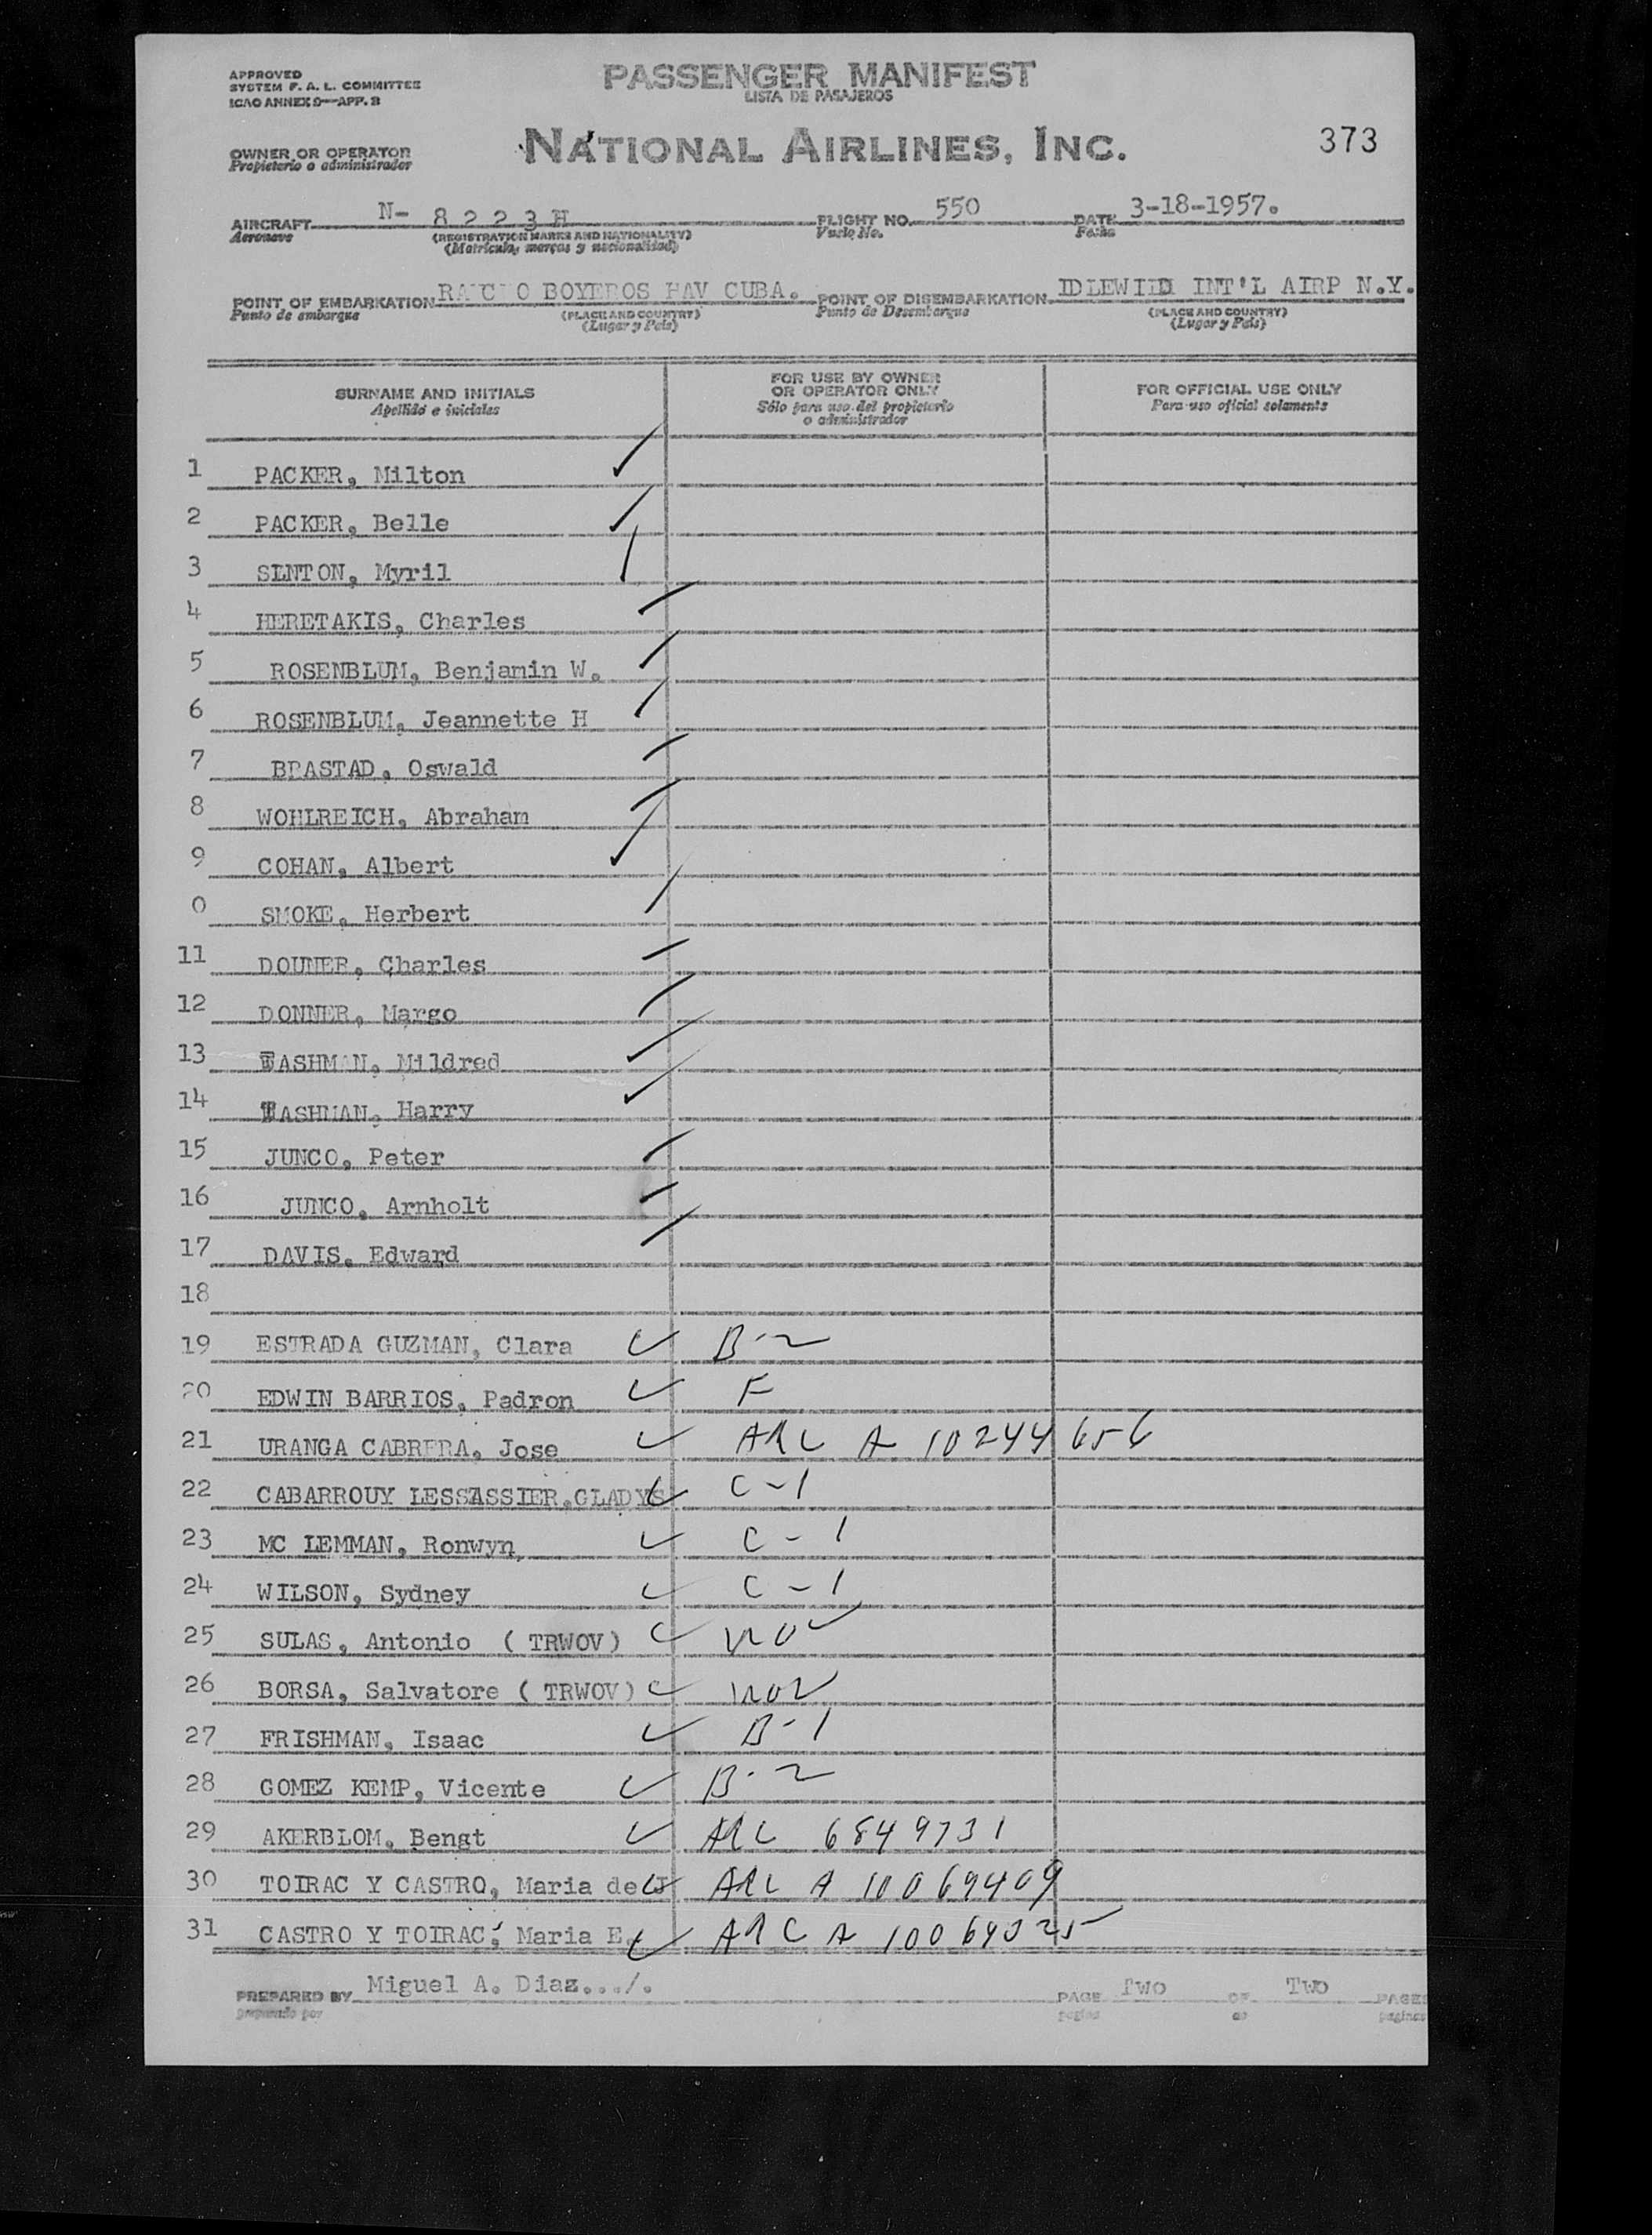 APPROVED
SYSTEM F. A. L. COMMITTEE
ICAO ANNEX 9—APP. 3
PASSENGER MANIFEST
LISTA DE PASAJEROS
OWNER OR OPERATOR
Propietario o administrador
NATIONAL AIRLINES, INC.
373
AIRCRAFT N- 8 2 2 3 H FLIGHT NO. 550 DATE 3-18-1957.
Aeronave (REGISTRATION MARKS AND NATIONALITY) Vuelo No. Fecha
(Matricula, marcas y nacionalidad)
POINT OF EMBARKATION BOYEROS HAV CUBA. POINT OF DISEMBARKATION IDLEWILD INT'L AIRP N.Y.
Punto de embarque (PLACE AND COUNTRY) Punto de Desembarque (PLACE AND COUNTRY)
(Lugar y Pais) (Lugar y Pais)
SURNAME AND INITIALS
Apellido e iniciales
FOR USE BY OWNER
OR OPERATOR ONLY
Sólo para uso del propietario
o administrador
FOR OFFICIAL USE ONLY
Para uso oficial solamente
1 PACKER, Milton
2 PACKER, Belle
3 SINTON, Myril
4 HERETAKIS, Charles
5 ROSENBLUM, Benjamin W.
6 ROSENBLUM, Jeannette H
7 BRASTAD, Oswald
8 WOHLREICH, Abraham
9 COHAN, Albert
0 SMOKE, Herbert
11 DONNER, Charles
12 DONNER, Margo
13 TASHMAN, Mildred
14 TASHMAN, Harry
15 JUNCO, Peter
16 JUNCO, Arnholt
17 DAVIS, Edward
18
19 ESTRADA GUZMAN, Clara B-2
20 EDWIN BARRIOS, Padron F
21 URANGA CABRERA, Jose ARC A 10244656
22 CABARROUY LESSASSIER,GLADYS C-1
23 MC LEMMAN, Ronwyn C-1
24 WILSON, Sydney C-1
25 SULAS, Antonio ( TRWOV)
26 BORSA, Salvatore ( TRWOV)
27 FRISHMAN, Isaac B-1
28 GOMEZ KEMP, Vicente B-2
29 AKERBLOM, Bengt ARC 6849731
30 TOIRAC Y CASTRO, Maria de J ARC A 10069409
31 CASTRO Y TOIRAC, Maria E. ARC A
PREPARED BY Miguel A. Diaz.../. PAGE Two OF Two PAGES
preparado por pagina de paginas